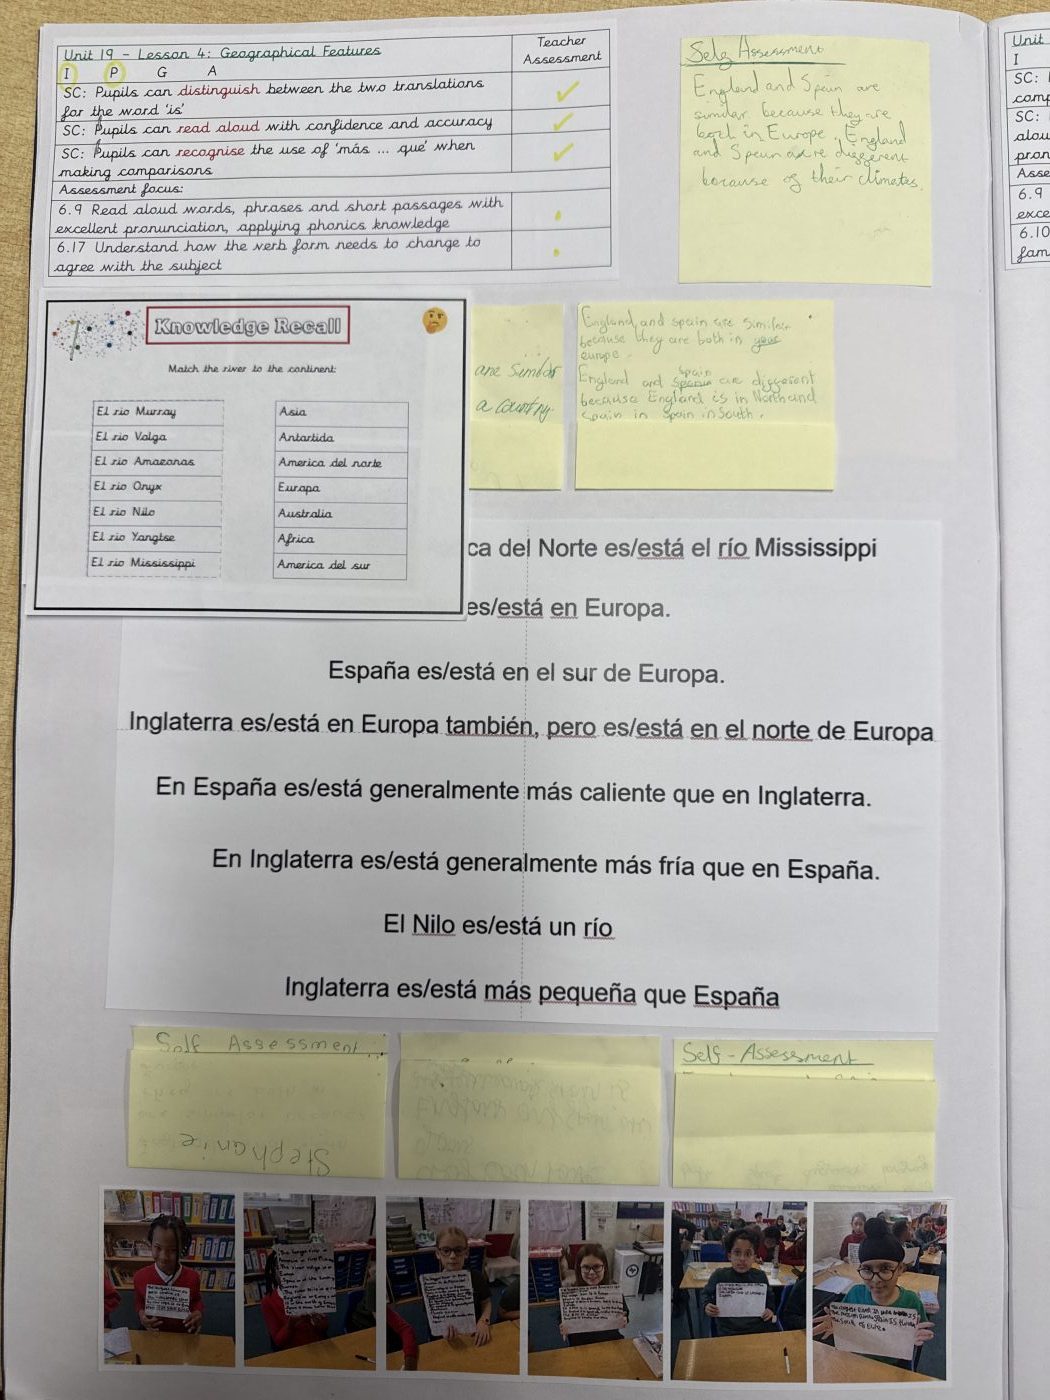 Unit 19 - Lesson 4: Geographical Features
I P G A
Teacher
Assessment
SC: Pupils can distinguish between the two translations
for the word 'is'
SC: Pupils can read aloud with confidence and accuracy
SC: Pupils can recognise the use of 'más ... que' when
making comparisons
Assessment focus:
6.9 Read aloud words, phrases and short passages with
excellent pronunciation, applying phonics knowledge
6.17 Understand how the verb form needs to change to
agree with the subject
Self Assessment
England and Spain are
similar because they are
both in Europe. England
and Spain are different
because of their climates.
Unit
I
SC:
SC:
Asse
6.9
6.10
Knowledge Recall
Match the river to the continent:
El rio Murray
El rio Volga
El rio Amazonas
El rio Onyx
El rio Nilo
El rio Yangtse
El rio Mississippi
Asia
Antartida
America del norte
Europa
Australia
Africa
America del sur
are similar
a country.
England and spain are similar
because they are both in
europe.
England and spain are different
because England is in North and
spain in spain in South.
ca del Norte es/está el río Mississippi
es/está en Europa.
España es/está en el sur de Europa.
Inglaterra es/está en Europa también, pero es/está en el norte de Europa
En España es/está generalmente más caliente que en Inglaterra.
En Inglaterra es/está generalmente más fría que en España.
El Nilo es/está un río
Inglaterra es/está más pequeña que España
Self Assessment
Stephanie
Self-Assessment